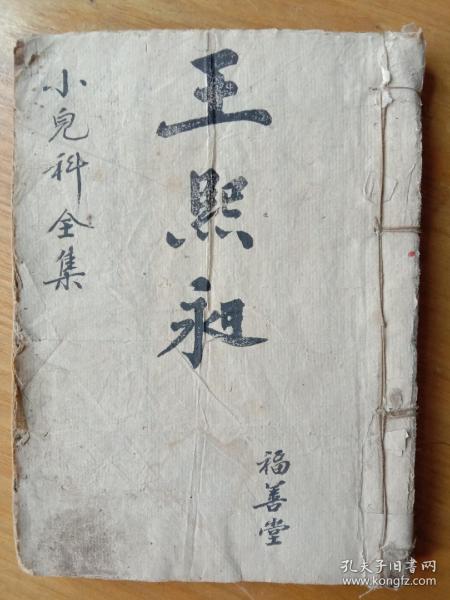 福善堂
王熙昶
小兒科全集
孔夫子旧书网
www.kongfz.com